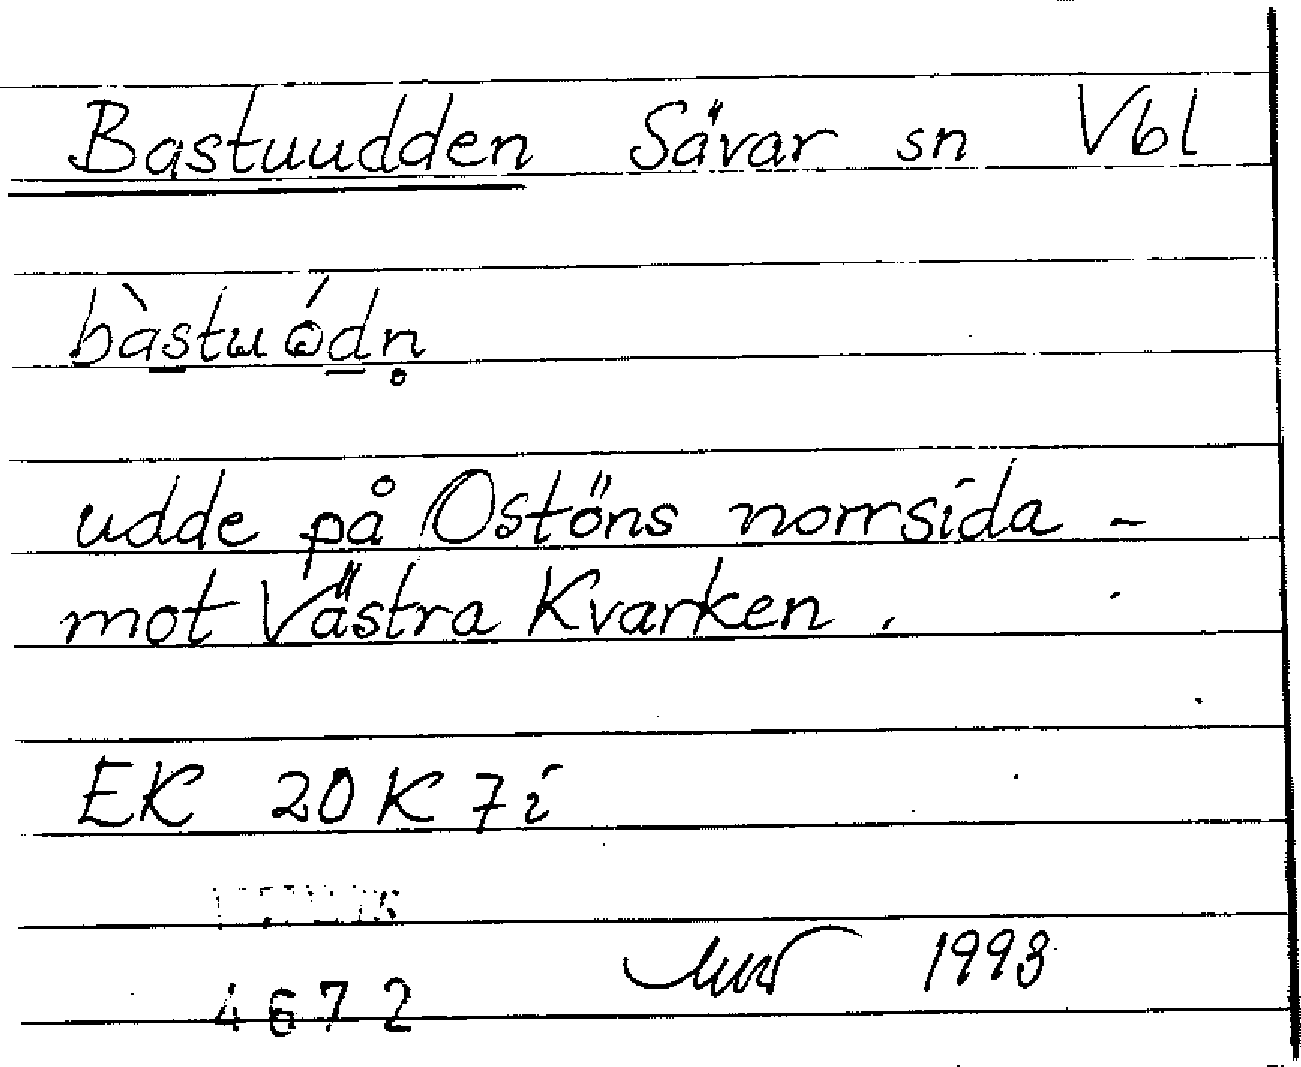 Bastuudden Sävar sn Vbl
bàstuódn̥
udde på Ostöns norrsida -
mot Västra Kvarken.
EK 20K 7i
1993
4672